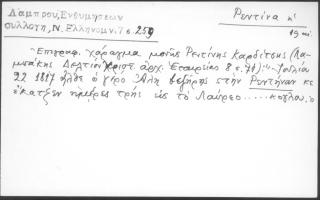 Λάμπρου, Ἐνθυμήσεων
συλλογή, Ν. Ἑλληνομν. 7 σ. 259
Ρεντίνα κ'
19 αἰ.
"Ἐπιγραφ. χάραγμα μονῆς Ρεντίνης Καρδίτσης (Λαμ-
πάκης Δελτίον Χριστ. ἀρχ. Ἑταιρείας 8 σ. 70): "Ἰουλία
22 1817 ἦλθε ὁ γέρο Ἀλῆ βεζύρης στὴν Ρεντίναν κὲ
ἔκατζεν ἡμέρες τρῆς ὡς τὸ Λαύρεο .....